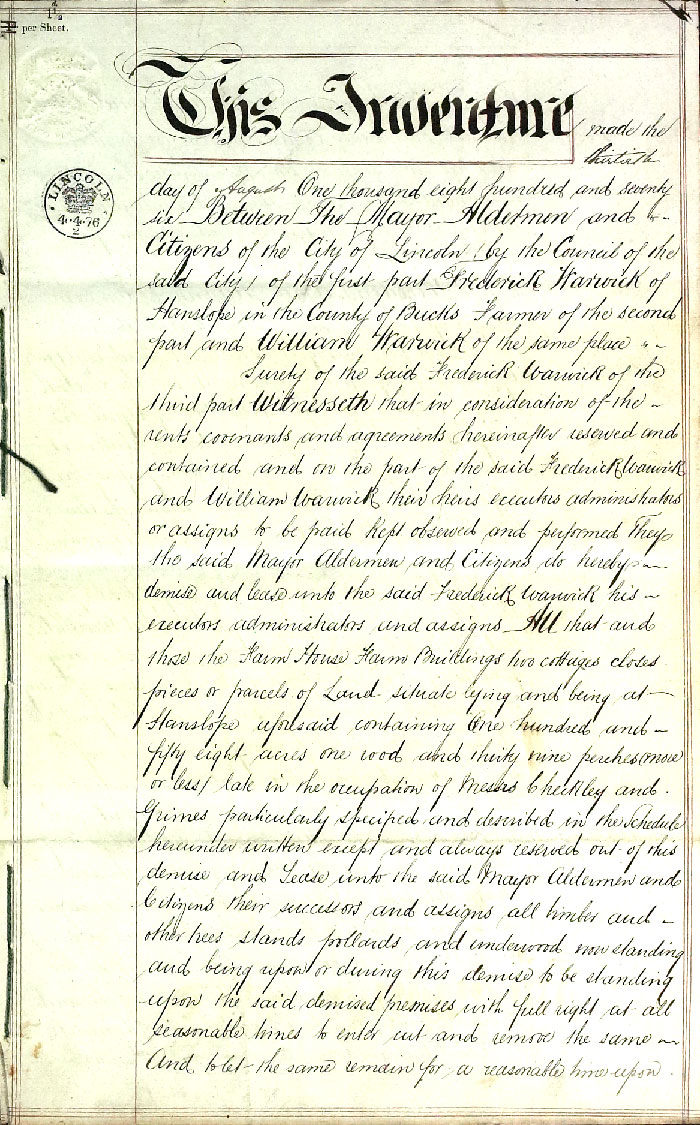 1½
per Sheet.
LINCOLN
4·4·76
2
This Indenture made the
thirtieth
day of August One thousand eight hundred and seventy
six Between The Mayor Aldermen and
Citizens of the City of Lincoln (by the Council of the
said City) of the first part Frederick Warwick of
Hanslope in the County of Bucks Farmer of the second
part and William Warwick of the same place
Surety of the said Frederick Warwick of the
third part Witnesseth that in consideration of the
rents covenants and agreements hereinafter reserved and
contained and on the part of the said Frederick Warwick
and William Warwick their heirs executors administrators
or assigns to be paid kept observed and performed They
the said Mayor Aldermen and Citizens do hereby
demise and lease unto the said Frederick Warwick his
executors administrators and assigns All that and
those the Farm House Farm Buildings two cottages closes
pieces or parcels of Land situate lying and being at
Hanslope aforesaid containing One hundred and
fifty eight acres one rood and thirty nine perches (more
or less) late in the occupation of Messrs Checkley and
Grimes particularly specified and described in the Schedule
hereunder written except and always reserved out of this
demise and Lease unto the said Mayor Aldermen and
Citizens their successors and assigns all timber and
other trees stands pollards and underwood now standing
and being upon or during this demise to be standing
upon the said demised premises with full right at all
seasonable times to enter cut and remove the same
And to let the same remain for a reasonable time upon